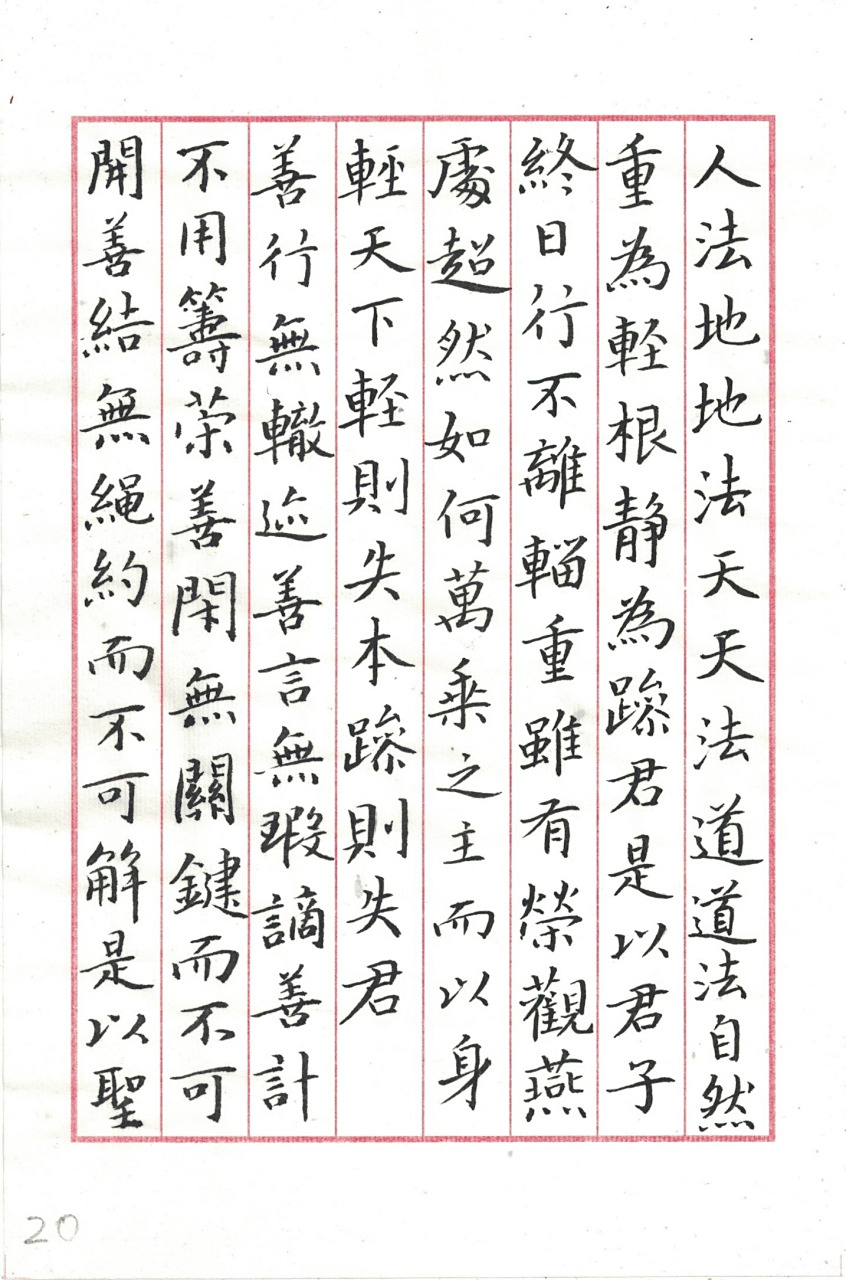 人法地地法天天法道道法自然
重為輕根静為躁君是以君子
終日行不離輜重雖有榮觀燕
處超然如何萬乘之主而以身
輕天下輕則失本躁則失君
善行無轍迹善言無瑕謫善計
不用籌策善閑無關鍵而不可
開善結無繩約而不可解是以聖
20